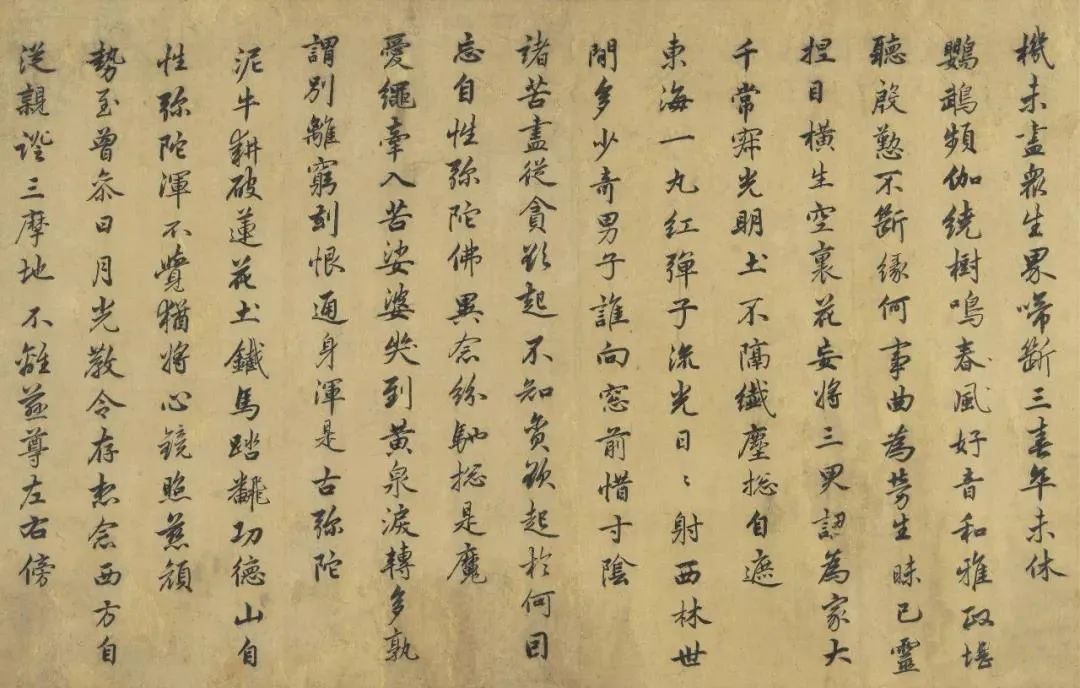 機未盡衆生界啼斷三春年未休
鸚鵡頻伽繞樹鳴春風好音和雅政堪
聽殷懃不斷緣何事曲為勞生昧已靈
捏目橫生空裏花妄將三界認為家大
千常寂光明土不隔纖塵揔自遮
東海一丸紅彈子流光日〻射西林世
間多少奇男子誰向窓前惜寸陰
諸苦盡從貪欲起不知貪欲起於何因
忘自性弥陀佛異念紛馳揔是魔
愛繩牽入苦娑婆哭到黃泉淚轉多孰
謂別離窮到恨通身渾是古弥陀
泥牛耕破蓮花土鐵馬踏翻功德山自
性弥陀渾不覺猶將心鏡照慈顔
勢至曾叅日月光教令存想念西方自
從親證三摩地不離慈尊左右傍